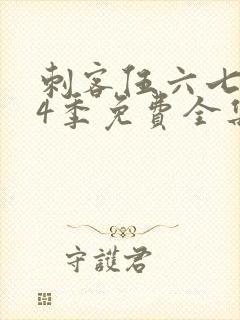 刺客伍六七
4季免費全集
守護君